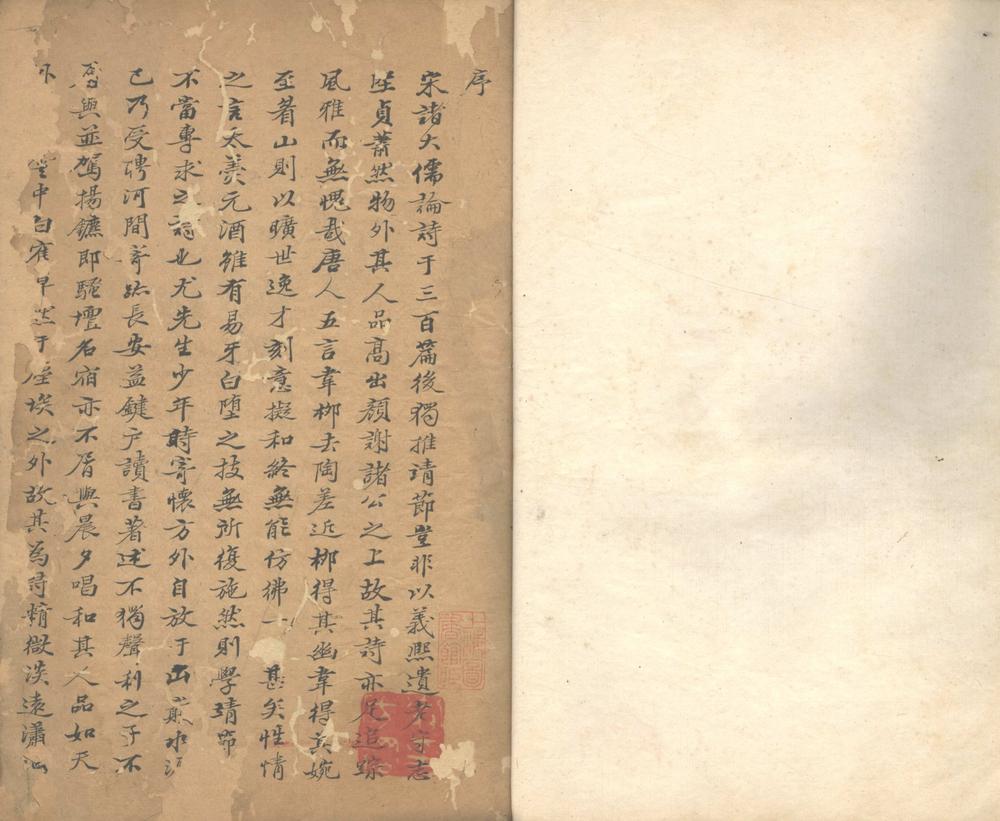 序
宋諸大儒論詩于三百篇後獨推靖節豈非以義熙遺老守志
堅貞蕭然物外其人品高出顏謝諸公之上故其詩亦足追踪
風雅而無愧哉唐人五言韋柳去陶差近柳得其幽韋得其婉
至眉山則以曠世逸才刻意擬和終無能仿彿一 甚矣性情
之言太羹元酒雖有易牙白墮之技無所復施然則學靖節
不當專求之詩也尤先生少年時寄懷方外自放于山巔水
已乃受聘河間寄跡長安益鍵户讀書著述不獨聲利之子不
與並駕揚鑣即騷壇名宿亦不屑與晨夕唱和其人品如天
中白 早 于 埃之外故其為詩精微淡遠瀟